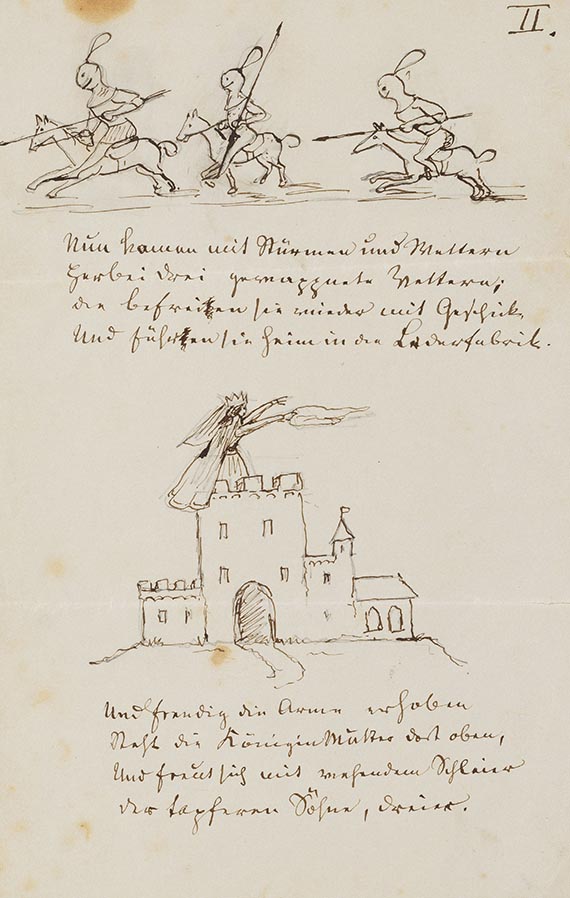 II.
Nun kamen mit Stürmen und Wettern
Herbei drei gewappnete Vettern;
die befreiten sie wieder mit Geschick
Und führten sie heim in die Lederfabrik.
Und freudig die Arme erhoben
Steht die Königin Mutter dort oben,
Und freut sich mit wehendem Schleier
der tapferen Söhne, dreier.